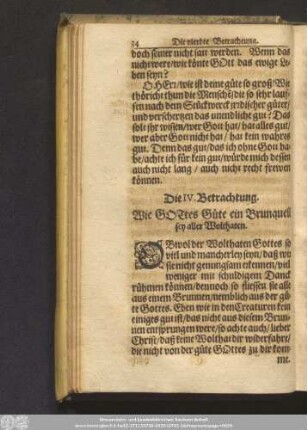 14 Die vierdte Betrachtung.
doch seiner nicht satt werden. Wenn das
nicht wert/wie könte GOtt das ewige Le-
ben seyn?
O HErr/wie ist deine güte so groß! Wie
thöricht thun die Menschē/die so sehr lauf-
fen nach dem Stückwerck irrdischer güter/
und verschertzen das unendliche gut? Das
solt ihr wissen/wer Gott hat/hat alles gut/
wer aber Gott nicht hat/ hat kein wahres
gut. Denn das gut/das ich ohne Gott ha-
be/achte ich für kein gut/würde mich dessen
auch nicht lang / auch nicht recht frewen
können.
Die IV. Betrachtung.
Wie GOTtes Güte ein Brunquell
sey aller Wolthaten.
OBwol der Wolthaten Gottes so
viel und mancherley seyn/daß wir
sie nicht genungsam erkennen/viel
weniger mit schuldigem Danck
rühmen können/dennoch so fliessen sie alle
aus einem Brunnen/nemblich aus der gü-
te Gottes. Eben wie in den Creaturen kein
einiges gut ist/das nicht aus diesem Brun-
nen entsprungen were/so achte auch/lieber
Christ/daß keine Wolthat dir widerfahre/
die nicht von der güte GOttes zu dir kom-
me.